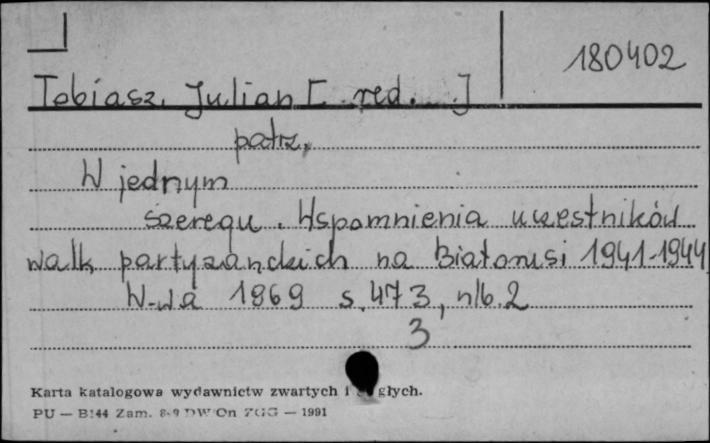 180402
Tobiasz, Julian [ red. ]
patrz,
W jednym
szeregu. Wspomnienia uczestników
walk partyzanckich na Białorusi 1941-1944
W-wa 1969 s. 473, nlb. 2
3
Karta katalogowa wydawnictw zwartych i głych.
PU — B144 Zam. DW On ZGG — 1991